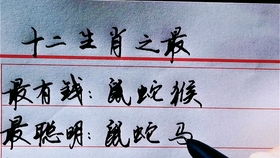 十二生肖之最
最有钱：鼠蛇猴
最聪明：鼠蛇马